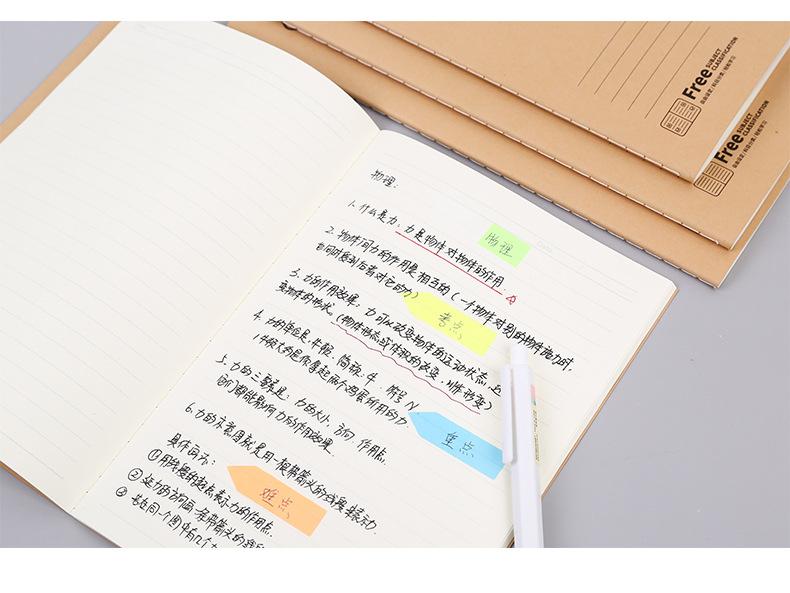 Free SUBJECT CLASSIFICATION
Free SUBJECT CLASSIFICATION
物理:
物理
1. 什么是力: 力是物体对物体的作用.
2. 物体间力的作用是相互的 (一个物体对别的物体施力时,
也同时受到后者对它的力)
考点
3. 力的作用效果: 力可以改变物体的运动状态, 还
变物体的形状. (物体形态或体积的改变, 叫做形变)
4. 力的单位是: 牛顿, 简称: 牛. 符号 N.
1牛顿大约是你拿起两个鸡蛋所用的力
重点
5. 力的三要素是: 力的大小, 方向, 作用点.
它们都能影响力的作用效果.
6. 力的示意图就是用一根带箭头的线段来表示力.
难点
具体画示:
① 用线段的起点表示力的作用点.
② 延力的方向画一条带箭头的
③ 若在同一个图中有几个力